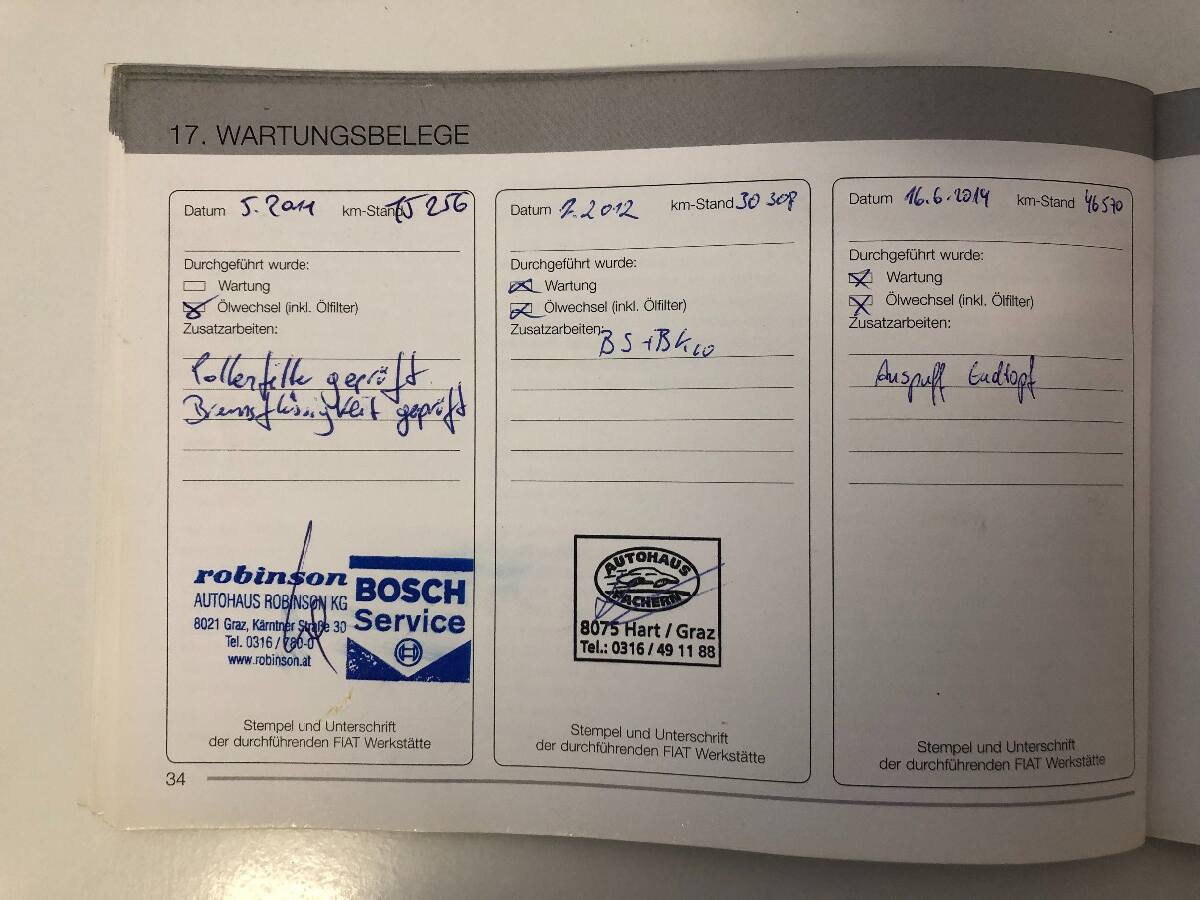 17. WARTUNGSBELEGE
Datum 5.2011 km-Stand 15 256
Durchgeführt wurde:
Wartung
Ölwechsel (inkl. Ölfilter)
Zusatzarbeiten:
Pollenfilter geprüft
Bremsflüssigkeit geprüft
robinson
AUTOHAUS ROBINSON KG
8021 Graz, Kärntner Straße 30
Tel. 0316 / 780-0
www.robinson.at
BOSCH
Service
Stempel und Unterschrift
der durchführenden FIAT Werkstätte
Datum 7.2012 km-Stand 30 308
Durchgeführt wurde:
Wartung
Ölwechsel (inkl. Ölfilter)
Zusatzarbeiten:
BS + BK
AUTOHAUS
MACHERN
8075 Hart / Graz
Tel.: 0316 / 49 11 88
Stempel und Unterschrift
der durchführenden FIAT Werkstätte
Datum 16.6.2014 km-Stand 46570
Durchgeführt wurde:
Wartung
Ölwechsel (inkl. Ölfilter)
Zusatzarbeiten:
Auspuff Endtopf
Stempel und Unterschrift
der durchführenden FIAT Werkstätte
34